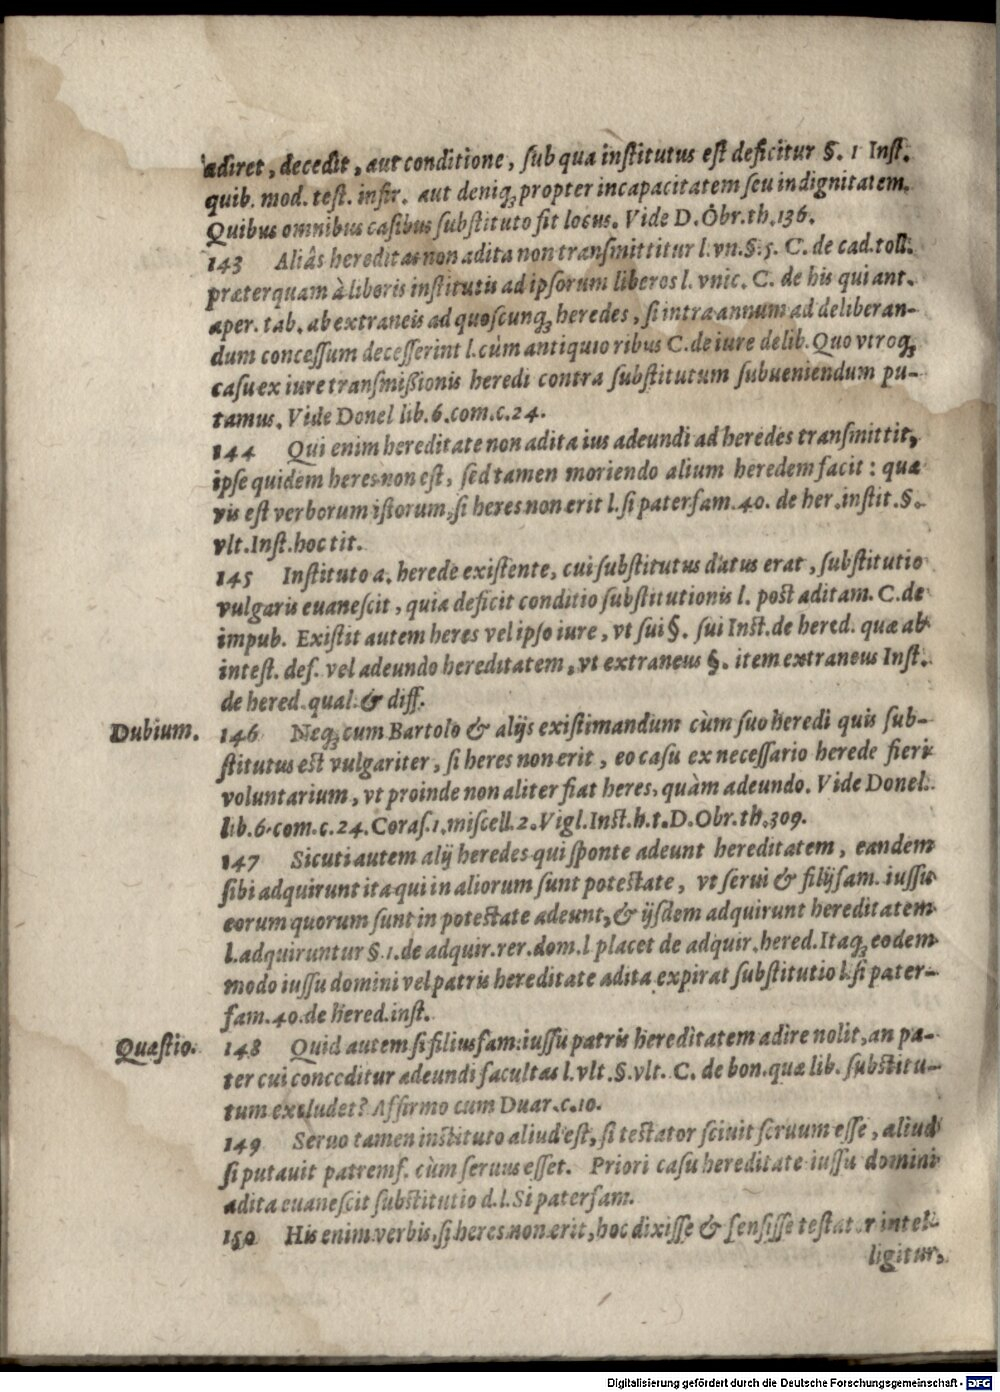 adiret, decedit, aut conditione, ſub qua inſtitutus eſt deficitur §. 1 Inſt.
quib. mod. teſt. infir. aut deniq; propter incapacitatem ſeu indignitatem.
Quibus omnibus caſibus ſubſtituto fit locus. Vide D. Obr. th. 136.
143 Aliàs hereditas non adita non tranſmittitur l. vn. §. 5. C. de cad. toll.
præterquam à liberis inſtitutis ad ipſorum liberos l. vnic. C. de his qui ant.
aper. tab. ab extraneis ad quoſcunq; heredes, ſi intra annum ad deliberan-
dum conceſſum deceſſerint l. cùm antiquioribus C. de iure delib. Quo vtroq;
caſu ex iure tranſmißionis heredi contra ſubſtitutum ſubueniendum pu-
tamus. Vide Donel lib. 6. com. c. 24.
144 Qui enim hereditate non adita ius adeundi ad heredes tranſmittit,
ipſe quidem heres non eſt, ſed tamen moriendo alium heredem facit: quæ
vis eſt verborum iſtorum, ſi heres non erit l. ſi paterfam. 40. de her. inſtit. §.
vlt. Inſt. hoc tit.
145 Inſtituto a. herede exiſtente, cui ſubſtitutus datus erat, ſubſtitutio
vulgaris euaneſcit, quia deficit conditio ſubſtitutionis l. poſt aditam. C. de
impub. Exiſtit autem heres vel ipſo iure, vt ſui §. ſui Inſt. de hered. quæ ab
inteſt. def. vel adeundo hereditatem, vt extraneus §. item extraneus Inſt.
de hered. qual. & diff.
Dubium. 146 Neq; cum Bartolo & alijs exiſtimandum cùm ſuo heredi quis ſub-
ſtitutus eſt vulgariter, ſi heres non erit, eo caſu ex neceſſario herede fieri
voluntarium, vt proinde non aliter fiat heres, quàm adeundo. Vide Donel.
lib. 6. com. c. 24. Coraſ. 1. miſcell. 2. Vigl. Inſt. h. t. D. Obr. th. 309.
147 Sicuti autem alij heredes qui ſponte adeunt hereditatem, eandem
ſibi adquirunt ita qui in aliorum ſunt poteſtate, vt ſerui & filijfam. iuſſu
eorum quorum ſunt in poteſtate adeunt, & ijſdem adquirunt hereditatem
l. adquiruntur §. 1. de adquir. rer. dom. l placet de adquir. hered. Itaq; eodem
modo iuſſu domini vel patris hereditate adita expirat ſubſtitutio l. ſi pater-
fam. 40. de hered. inſt.
Quæſtio. 148 Quid autem ſi filiusfam. iuſſu patris hereditatem adire nolit, an pa-
ter cui conceditur adeundi facultas l. vlt. §. vlt. C. de bon. quæ lib. ſubſtitu-
tum excludet? Affirmo cum Duar. c. 10.
149 Seruo tamen inſtituto aliud eſt, ſi teſtator ſciuit ſeruum eſſe, aliud
ſi putauit patremf. cùm ſeruus eſſet. Priori caſu hereditate iuſſu domini
adita euaneſcit ſubſtitutio d. l. Si paterfam.
150 His enim verbis, ſi heres non erit, hoc dixiſſe & ſenſiſſe teſtator intel-
ligitur,
Digitalisierung gefördert durch die Deutsche Forschungsgemeinschaft - DFG